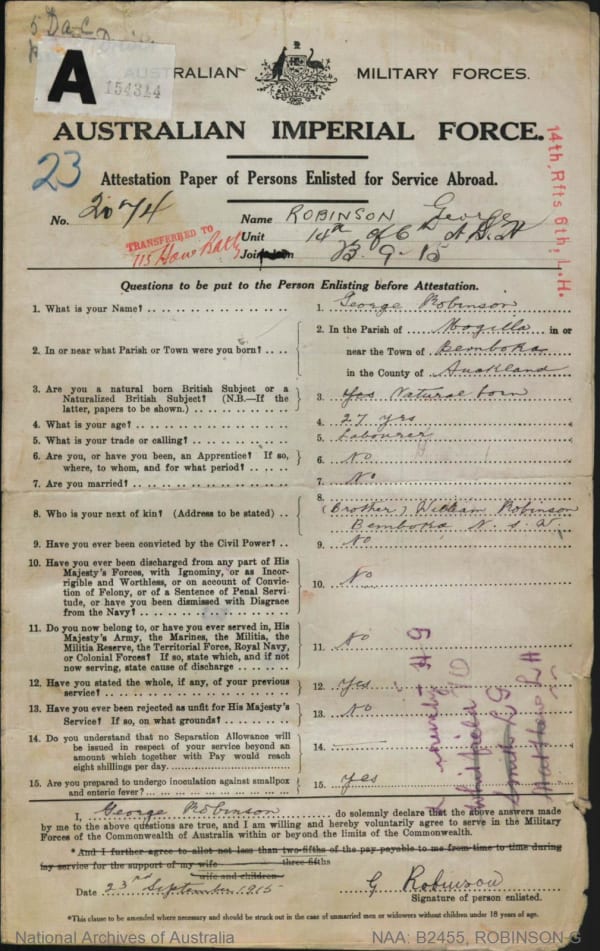 5 D.A.C.
A
154314
AUSTRALIAN MILITARY FORCES.
AUSTRALIAN IMPERIAL FORCE.
23
Attestation Paper of Persons Enlisted for Service Abroad.
14th, Rfts 6th, L.H.
No. 2074
Name ROBINSON George
TRANSFERRED TO
115 How Baty
Unit 14th of 6th A.L.H
Joined on 23-9-15
Questions to be put to the Person Enlisting before Attestation.
1. What is your Name? 1. George Robinson
2. In or near what Parish or Town were you born? 2. In the Parish of Mogilla in or
near the Town of Bemboka
in the County of Auckland
3. Are you a natural born British Subject or a
Naturalized British Subject? (N.B.—If the
latter, papers to be shown.) 3. Yes Natural born
4. What is your age? 4. 27 yrs
5. What is your trade or calling? 5. Labourer
6. Are you, or have you been, an Apprentice? If so,
where, to whom, and for what period? 6. No
7. Are you married? 7. No
8. Who is your next of kin? (Address to be stated) 8. (Brother) William Robinson
Bemboka N.S.W.
9. Have you ever been convicted by the Civil Power? 9. No
10. Have you ever been discharged from any part of His
Majesty's Forces, with Ignominy, or as Incor-
rigible and Worthless, or on account of Convic-
tion of Felony, or of a Sentence of Penal Servi-
tude, or have you been dismissed with Disgrace
from the Navy? 10. No
11. Do you now belong to, or have you ever served in, His
Majesty's Army, the Marines, the Militia, the
Militia Reserve, the Territorial Force, Royal Navy,
or Colonial Forces? If so, state which, and if not
now serving, state cause of discharge 11. No
12. Have you stated the whole, if any, of your previous
service? 12. Yes
13. Have you ever been rejected as unfit for His Majesty's
Service? If so, on what grounds? 13. No
14. Do you understand that no Separation Allowance will
be issued in respect of your service beyond an
amount which together with Pay would reach
eight shillings per day. 14. —
15. Are you prepared to undergo inoculation against smallpox
and enteric fever? 15. Yes
I, George Robinson do solemnly declare that the above answers made
by me to the above questions are true, and I am willing and hereby voluntarily agree to serve in the Military
Forces of the Commonwealth of Australia within or beyond the limits of the Commonwealth.
*And I further agree to allot not less than two-fifths of the pay payable to me from time to time during
my service for the support of my wife three-fifths
wife and children
Date 23rd September 1915
G Robinson
Signature of person enlisted.
*This clause to be amended where necessary and should be struck out in the case of unmarried men or widowers without children under 18 years of age.
National Archives of Australia
NAA: B2455, ROBINSON G